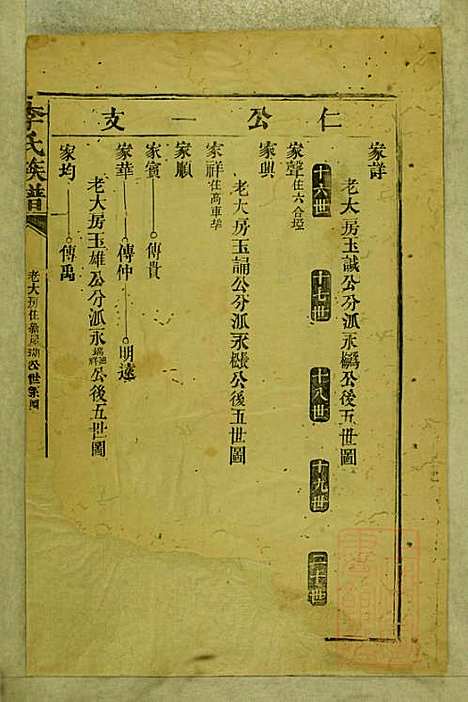 仁公一支
家詳
老大房玉誠公分派永㰎公後五世圖
十六世 十七世 十八世 十九世 二十世
家聲住六合塭
家興
老大房玉誦公分派永樾公後五世圖
家祥住高車
家順
家賓 傳貴
家華 傳仲 明遠
老大房玉雄公分派永公後五世圖
家均 傳禹
李氏族譜
老大房住公世系圖